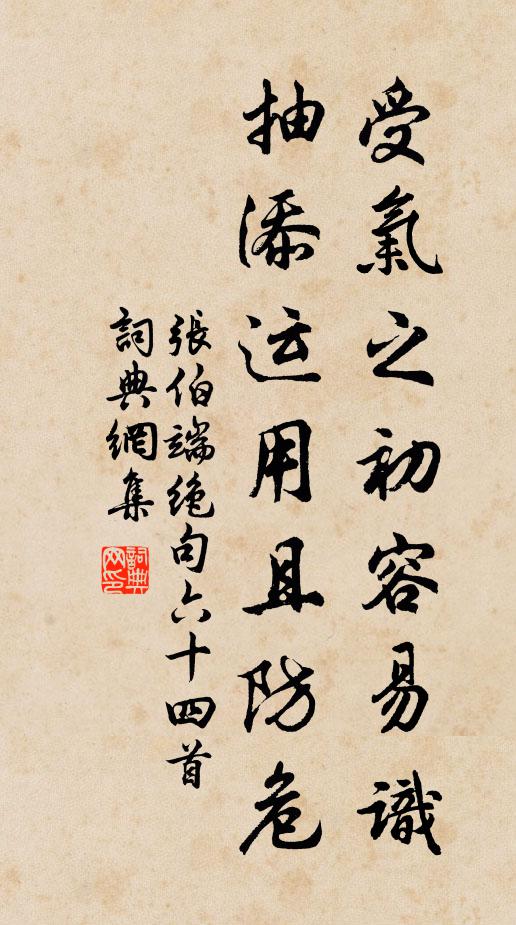 受氣之初容易識
抽添运用且防危
張伯端絶句六十四首
詞典網集
詞典網印